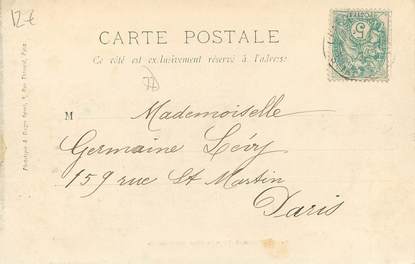 12 €
CARTE POSTALE
Ce côté est exclusivement réservé à l'adresse
M Mademoiselle
Germaine Lévy
159 rue St Martin
Paris